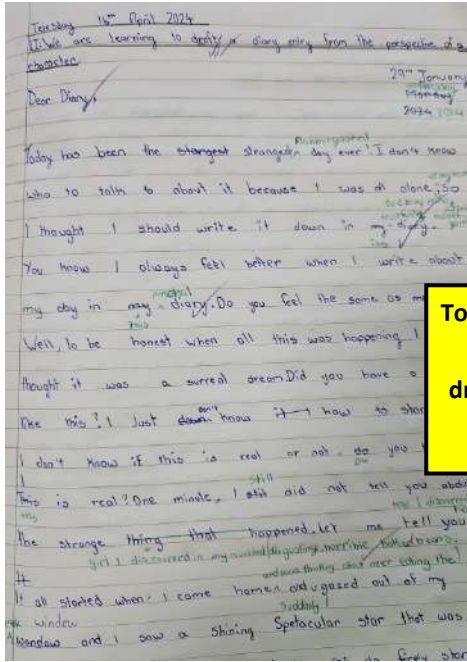 Tuesday 16th April 2024
L.I: We are learning to draft a diary entry from the perspective of a
character.
29th January
Monday
2024 2014
Dear Diary,
flabbergasted
Today has been the stangest strangest day ever! I don't know
who to talk to about it because I was all alone, so
I thought I should write it down in my diary.
You know I always feel better when I write about
magical
my day in my diary. Do you feel the same as me
this
Well, to be honest when all this was happening I
thought it was a surreal dream. Did you have a
To
dr
like this? I Just don't know how to star
I don't know if this is real or not. do you
Do
still
This is real? One minute, I still did not tell you abou
the strange thing that happened. Let me tell you
girl I discovered in my
It
It all started when I came home and I gazed out of my
window
Suddenly
window and I saw a shining Spetacular star that was